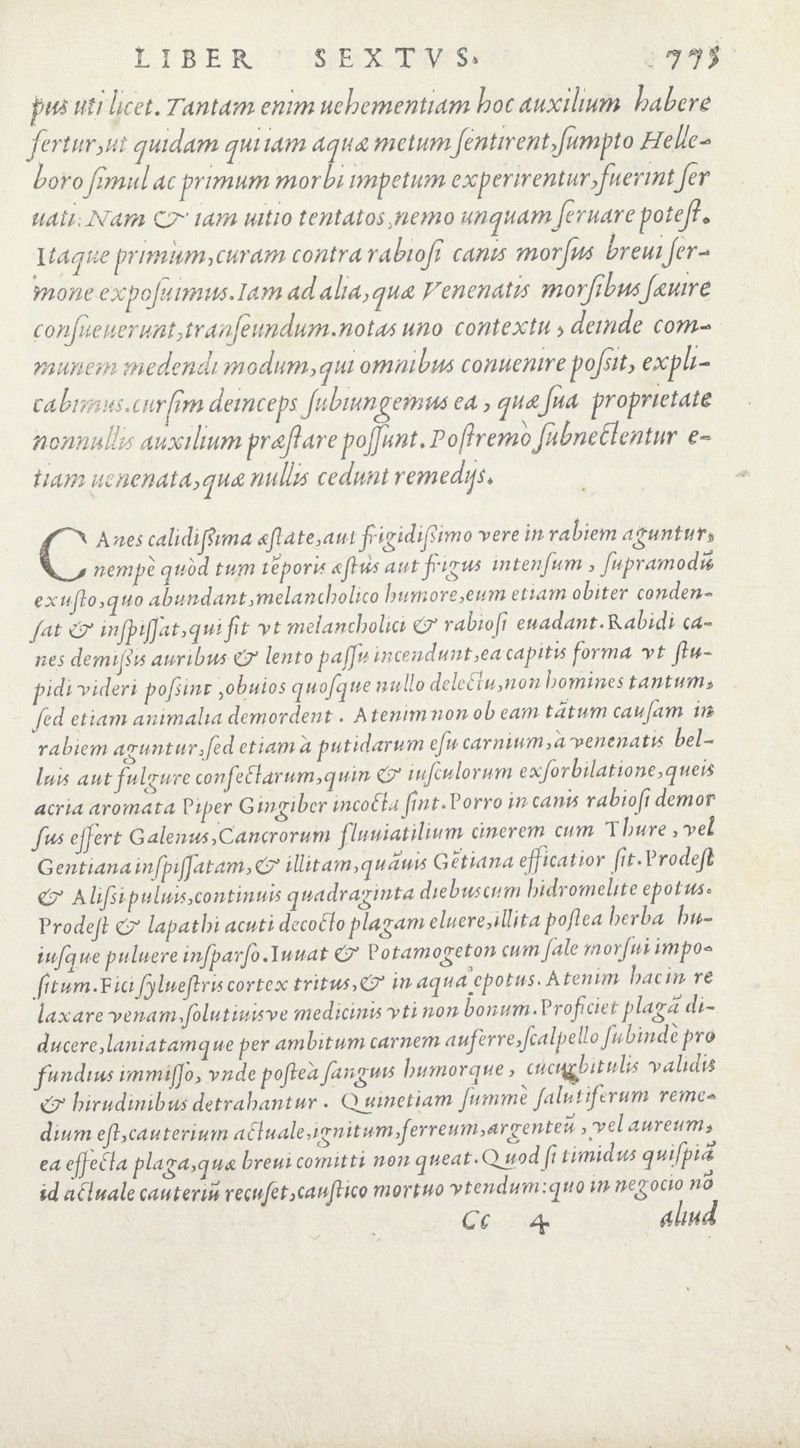 LIBER SEXTVS. 775
pus uti licet. Tantam enim uehementiam hoc auxilium habere
fertur, ut quidam qui iam aquæ metum ſentirent, ſumpto Helle-
boro ſimul ac primum morbi impetum experirentur, fuerint ſer
uati. Nam & iam uitio tentatos, nemo unquam ſeruare poteſt.
Itaque primùm, curam contra rabioſi canis morſus breui ſer-
mone expoſuimus. Iam ad alia, quæ Venenatis morſibus ſæuire
conſueuerunt, tranſeundum. notas uno contextu, deinde com-
munem medendi modum, qui omnibus conuenire poſsit, expli-
cabimus. curſim deinceps ſubiungemus ea, quæ ſua proprietate
nonnullis auxilium præſtare poſſunt. Poſtremò ſubnectentur e-
tiam uenenata, quæ nullis cedunt remedijs.
CAnes calidiſsima æſtate, aut frigidiſsimo vere in rabiem aguntur,
nempè quòd tum tẽporis æſtùs aut frigus intenſum, ſupramodũ
exuſto, quo abundant, melancholico humore, eum etiam obiter conden-
ſat & inſpiſſat, qui fit vt melancholici & rabioſi euadant. Rabidi ca-
nes demiſsis auribus & lento paſſu incendunt, ea capitis forma vt ſtu-
pidi videri poſsint, obuios quoſque nullo delectu, non homines tantum,
ſed etiam animalia demordent. Atenim non ob eam tãtum cauſam in
rabiem aguntur, ſed etiam à putidarum eſu carnium, à venenatis bel-
luis aut fulgure confectarum, quin & iuſculorum exſorbilatione, queis
acria aromata Piper Gingiber incocta ſint. Porro in canis rabioſi demor
ſus effert Galenus, Cancrorum fluuiatilium cinerem cum Thure, vel
Gentiana inſpiſſatam, & illitam, quãuis Gẽtiana efficatior ſit. Prodeſt
& Aliſsi puluis, continuis quadraginta diebus cum hidromelite epotus.
Prodeſt & lapathi acuti decocto plagam eluere, illita poſtea herba hu-
iuſque puluere inſparſo. Iuuat & Potamogeton cum ſale morſui impo-
ſitum. Fici ſylueſtris cortex tritus, & in aqua epotus. Atenim hac in re
laxare venam, ſolutiuisve medicinis vti non bonum. Proficiet plagã di-
ducere, laniatamque per ambitum carnem auferre, ſcalpello ſubindè pro
fundius immiſſo, vnde poſteà ſanguis humorque, cucurbitulis validis
& hirudinibus detrahantur. Quinetiam ſummè ſalutiferum reme-
dium eſt, cauterium actuale, ignitum, ferreum, argenteũ, vel aureum,
ea effecta plaga, quæ breui comitti non queat. Quod ſi timidus quiſpiã
id actuale cauteriũ recuſet, cauſtico mortuo vtendum: quo in negocio nõ
Cc 4 aliud